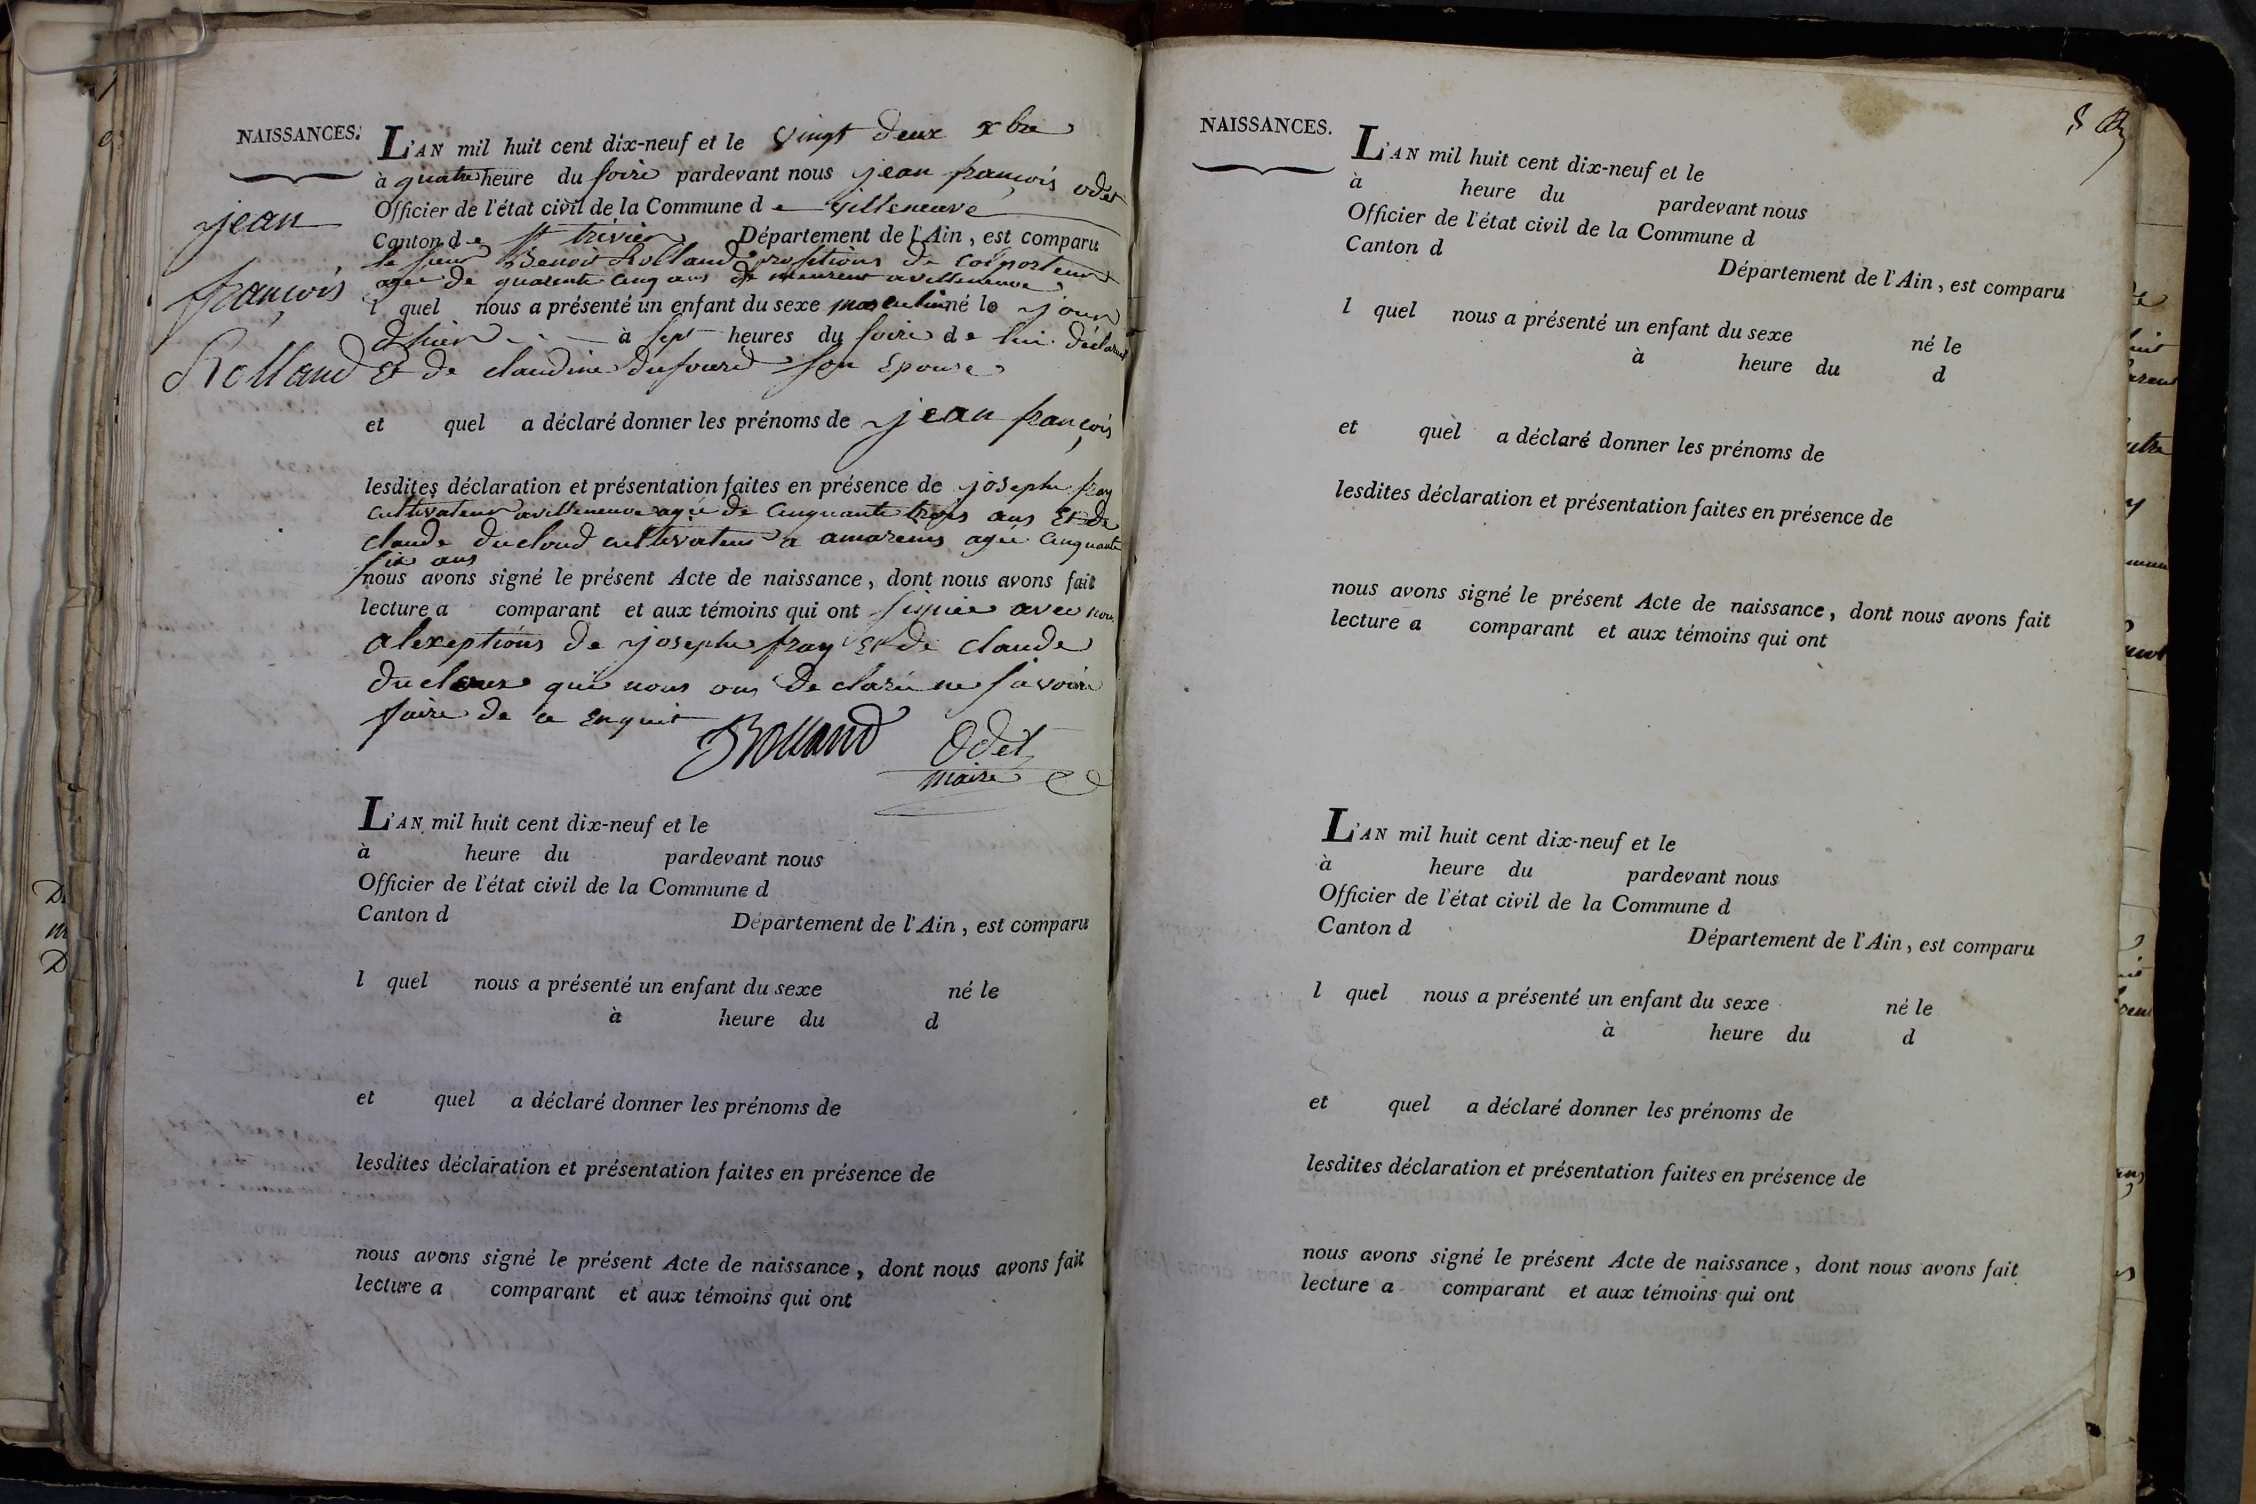 NAISSANCES.
jean
françois
Rolland
L'AN mil huit cent dix-neuf et le vingt deux xbre
à quatre heure du soire pardevant nous jean françois odet
Officier de l'état civil de la Commune de villeneuve
Canton de st trivier Département de l'Ain, est comparu
le sieur Benoit Rolland profetions de colporteur
agee de quarente cinq ans de meurent a villeneuve
l quel nous a présenté un enfant du sexe masculin né le jour
d'hier à sept heures du soire de lui déclarant
et de claudine dufourd son Epouse
et quel a déclaré donner les prénoms de jean françois
lesdites déclaration et présentation faites en présence de josephe fray
cultivateur a villeneuve agée de cinquante trois ans Et de
claude ducloud cultivateur a amareins agée cinquante
six ans
nous avons signé le présent Acte de naissance, dont nous avons fait
lecture a comparant et aux témoins qui ont signée avec nous
alexeptions de josephe fray Et de claude
ducloux qui nous ons declarée ne savoire
faire de ce enquit
BRolland Odet
maire
L'AN mil huit cent dix-neuf et le
à heure du pardevant nous
Officier de l'état civil de la Commune d
Canton d Département de l'Ain, est comparu
l quel nous a présenté un enfant du sexe né le
à heure du d
et quel a déclaré donner les prénoms de
lesdites déclaration et présentation faites en présence de
nous avons signé le présent Acte de naissance, dont nous avons fait
lecture a comparant et aux témoins qui ont
NAISSANCES.
L'AN mil huit cent dix-neuf et le
à heure du pardevant nous
Officier de l'état civil de la Commune d
Canton d
Département de l'Ain, est comparu
l quel nous a présenté un enfant du sexe né le
à heure du d
et quel a déclaré donner les prénoms de
lesdites déclaration et présentation faites en présence de
nous avons signé le présent Acte de naissance, dont nous avons fait
lecture a comparant et aux témoins qui ont
L'AN mil huit cent dix-neuf et le
à heure du pardevant nous
Officier de l'état civil de la Commune d
Canton d Département de l'Ain, est comparu
l quel nous a présenté un enfant du sexe né le
à heure du d
et quel a déclaré donner les prénoms de
lesdites déclaration et présentation faites en présence de
nous avons signé le présent Acte de naissance, dont nous avons fait
lecture a comparant et aux témoins qui ont